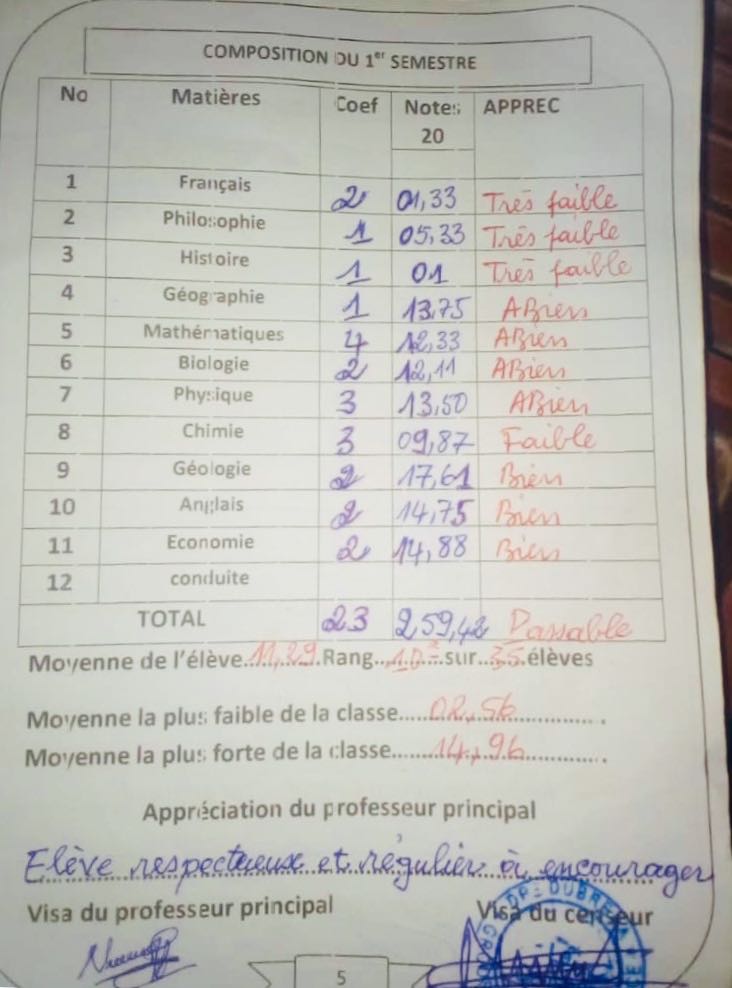 COMPOSITION DU 1er SEMESTRE
No Matières Coef Notes 20 APPREC
1 Français 2 01,33 Très faible
2 Philosophie 1 05,33 Très faible
3 Histoire 1 01 Très faible
4 Géographie 1 13,75 ABien
5 Mathématiques 4 12,33 ABien
6 Biologie 2 12,11 ABien
7 Physique 3 13,50 ABien
8 Chimie 3 09,87 Faible
9 Géologie 2 17,61 Bien
10 Anglais 2 14,75 Bien
11 Economie 2 14,88 Bien
12 conduite
TOTAL 23 259,42 Passable
Moyenne de l'élève..11,29.Rang..10e..sur..35.élèves
Moyenne la plus faible de la classe.....02,56............
Moyenne la plus forte de la classe.....14,96............
Appréciation du professeur principal
Elève respectueux et régulier à encourager
Visa du professeur principal Visa du censeur
DPE DUBREKA
5